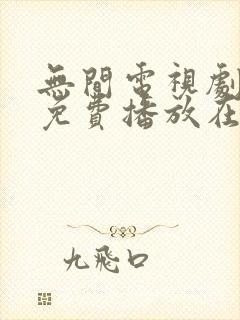 無間電視劇
免費播放在
九飛口